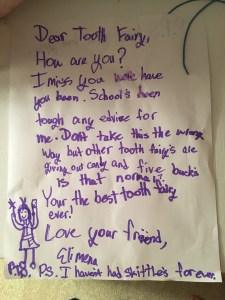 Dear Tooth Fairy,
How are you?
I miss you were have
you been. School's been
tough any edvise for
me. Dont take this the wrong
way but other tooth fairy's are
giving out candy and five bucks
is that normal?
Your the best tooth fairy
ever!
Love your friend,
Elimena
P.S. I haven't had skittle's forever.